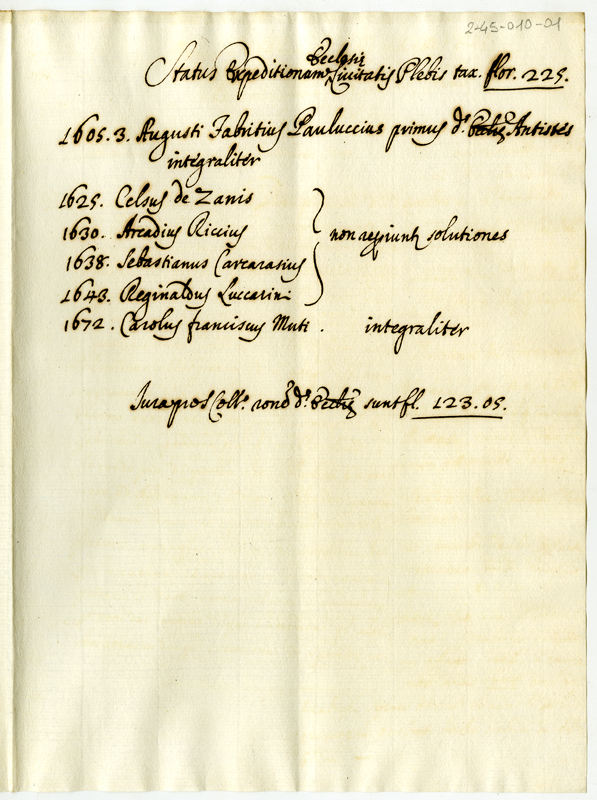 2-45-010-01
Ecclesię
Status Expeditionum Civitatis Plebis tax. flor. 225.
1605. 3. Augusti Fabritius Pauluccius primus d.ę Eccłię Antistes
integraliter
1625. Celsus de Zanis
1630. Arcadius Riccius
non reperiunt solutiones
1638. Sebastianus Carcarasius
1643. Reginaldus Luccarini
1672. Carolus franciscus Muti. integraliter
Jura pro S. Coll.º d.ę Eccłię sunt fl. 123.05.